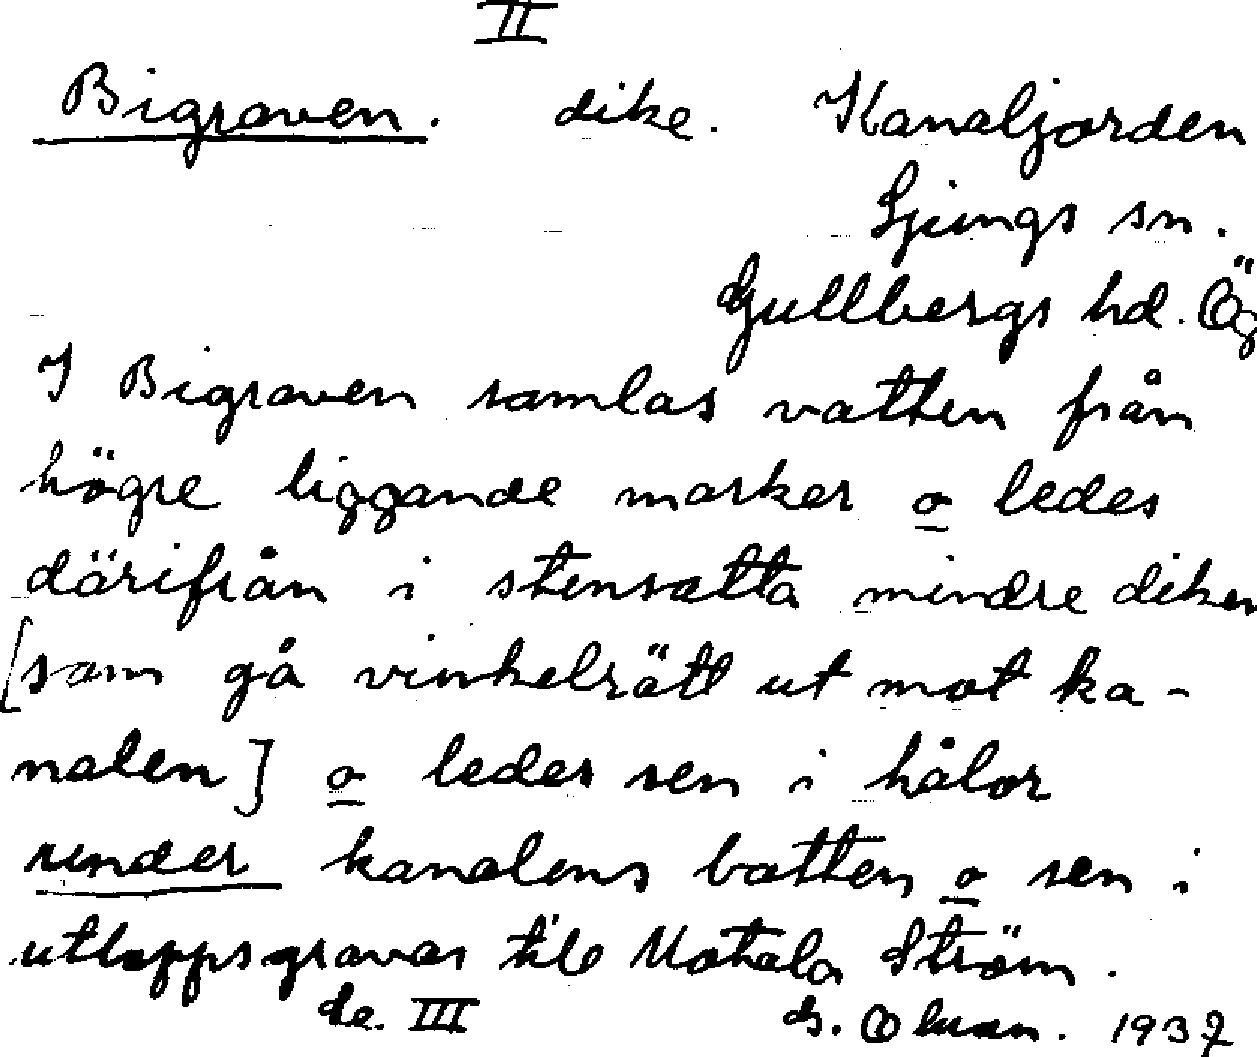 II
Bigraven. dike. Kanaljorden
Ljungs sn.
Gullbergs hd. Ög
I Bigraven samlas vatten från
högre liggande marker o ledes
därifrån i stensatta mindre diken
[som gå vinkelrätt ut mot ka-
nalen] o ledes sen i hålor
under kanalens botten o sen i
utloppsgravar till Motala Ström.
se. III G. 1937